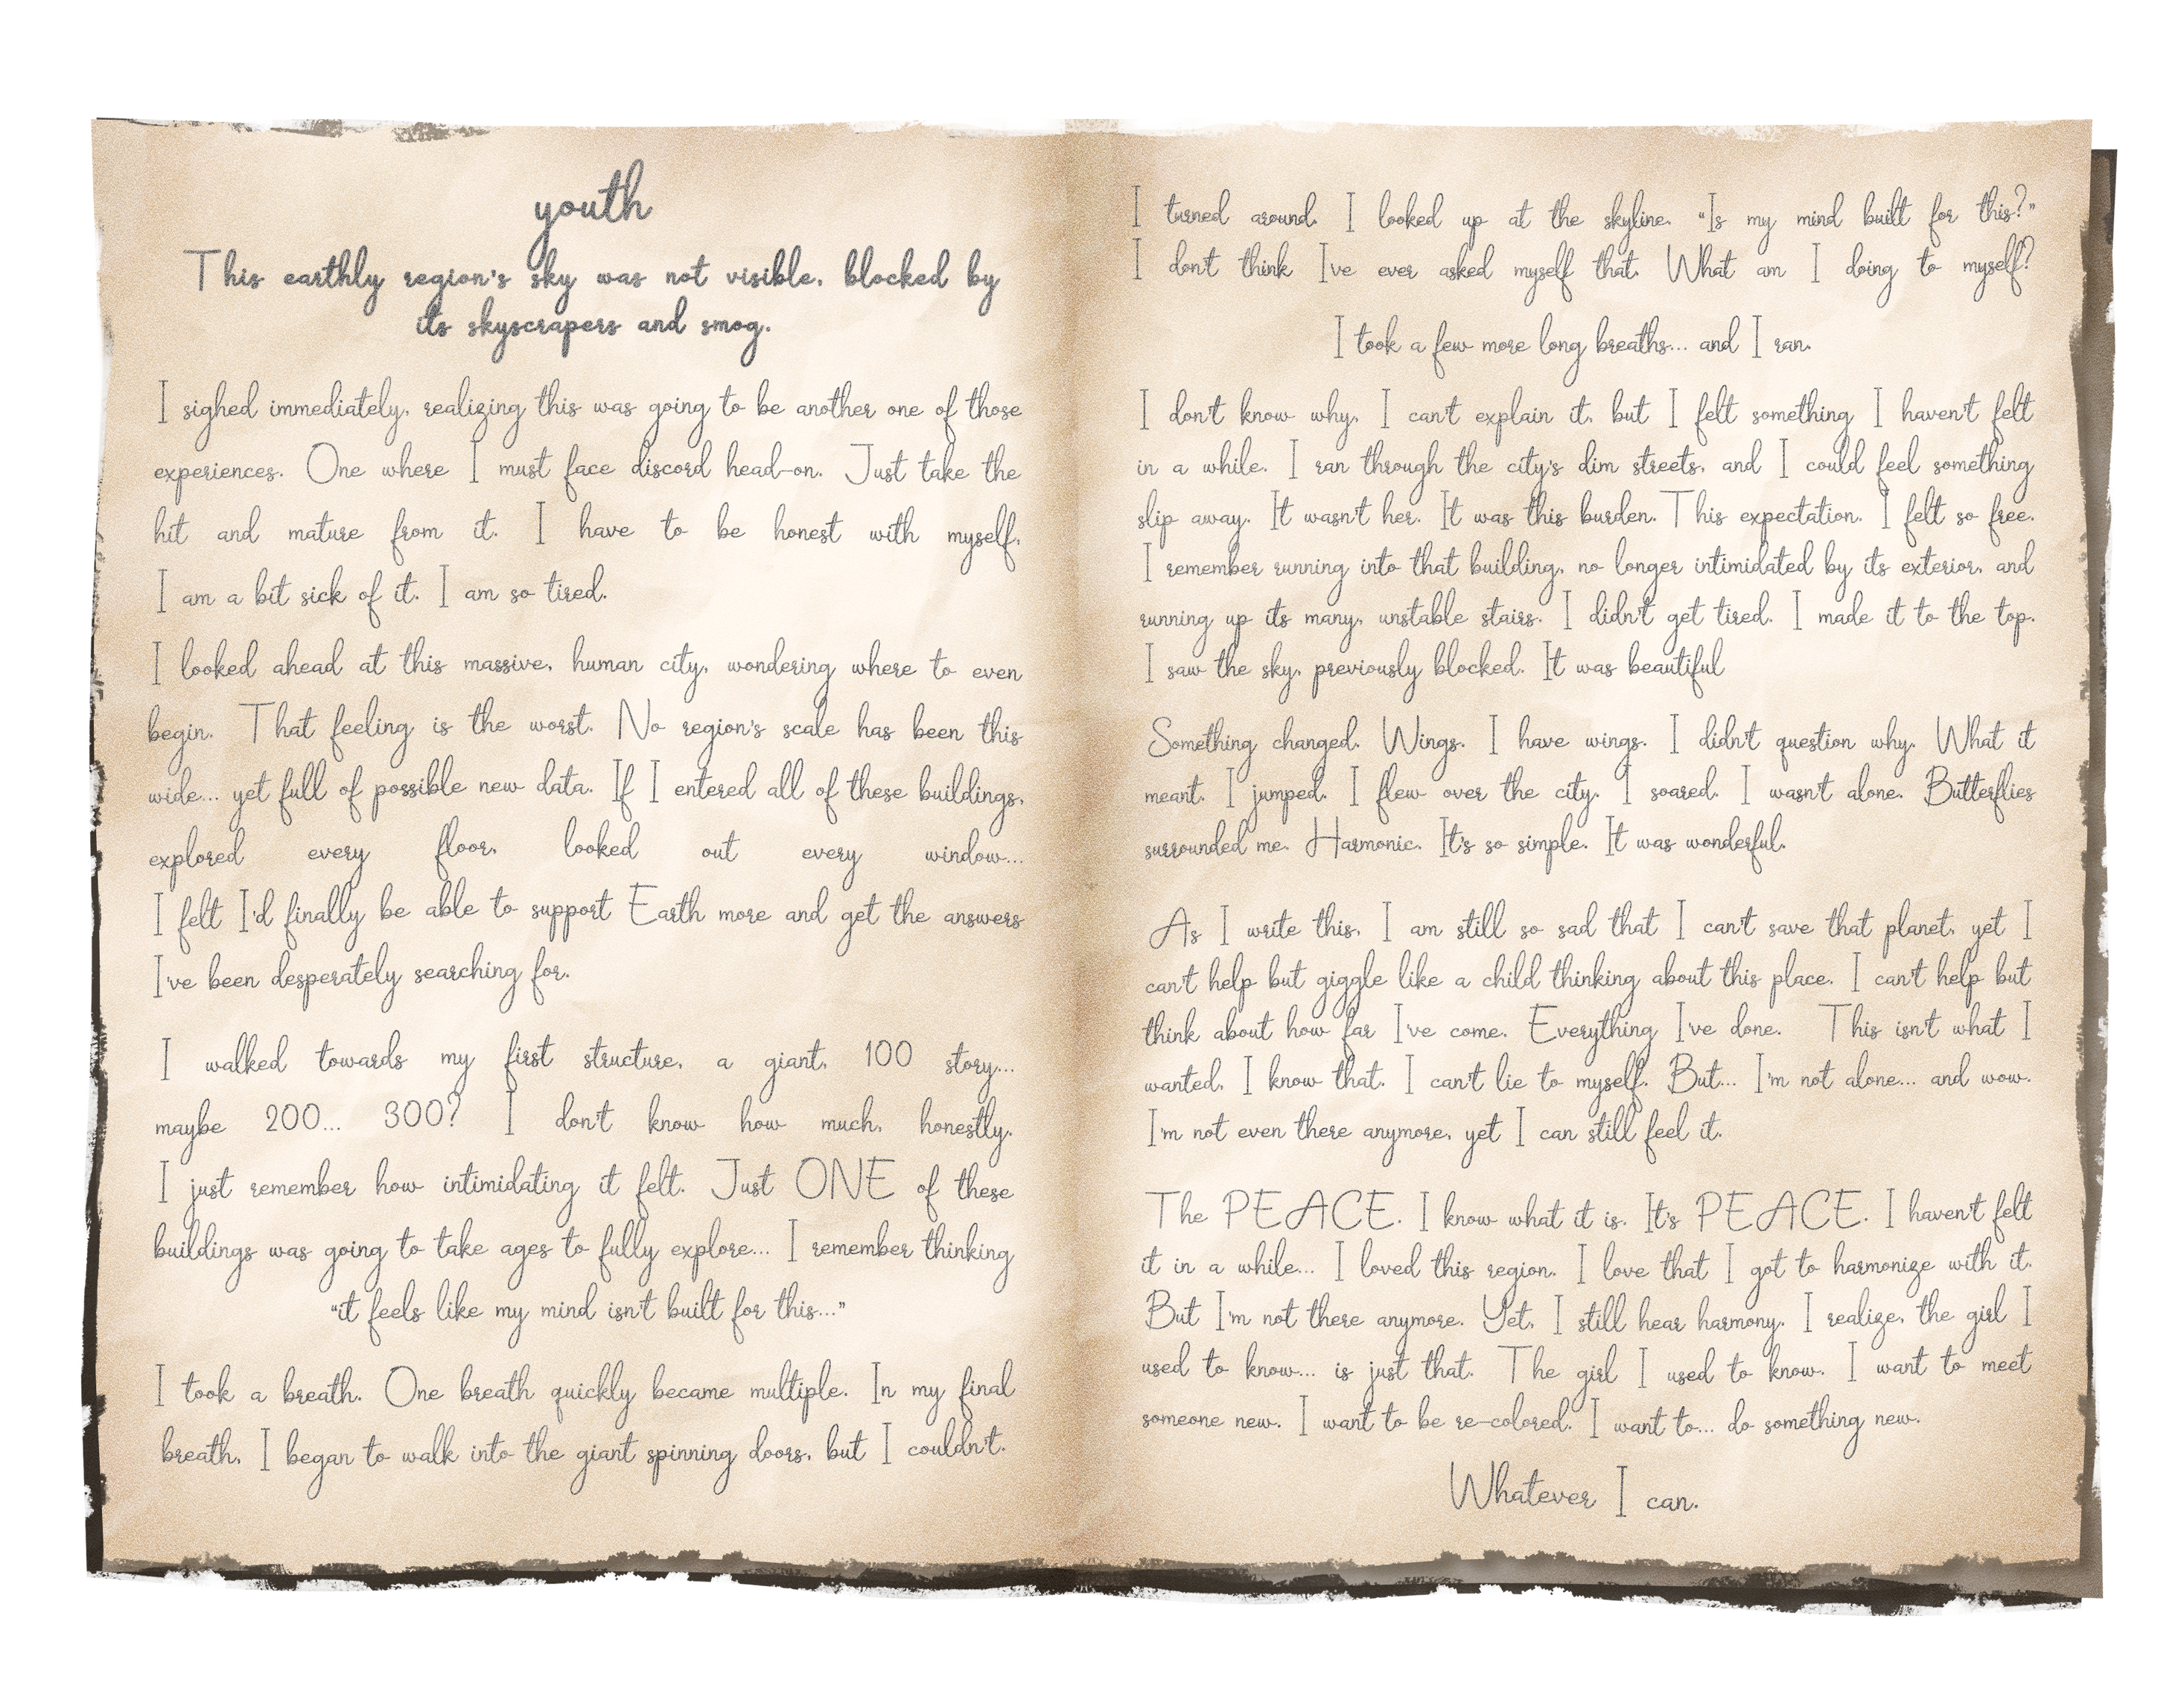 youth
This earthly region's sky was not visible, blocked by
its skyscrapers and smog.
I sighed immediately, realizing this was going to be another one of those
experiences. One where I must face discord head-on. Just take the
hit and mature from it. I have to be honest with myself,
I am a bit sick of it. I am so tired.
I looked ahead at this massive, human city, wondering where to even
begin. That feeling is the worst. No region's scale has been this
wide... yet full of possible new data. If I entered all of these buildings,
explored every floor, looked out every window...
I felt I'd finally be able to support Earth more and get the answers
I've been desperately searching for.
I walked towards my first structure, a giant, 100 story...
maybe 200... 300? I don't know how much, honestly.
I just remember how intimidating it felt. Just ONE of these
buildings was going to take ages to fully explore... I remember thinking
"it feels like my mind isn't built for this..."
I took a breath. One breath quickly became multiple. In my final
breath, I began to walk into the giant spinning doors, but I couldn't.
I turned around. I looked up at the skyline. "Is my mind built for this?"
I don't think I've ever asked myself that. What am I doing to myself?
I took a few more long breaths... and I ran.
I don't know why, I can't explain it, but I felt something I haven't felt
in a while. I ran through the city's dim streets, and I could feel something
slip away. It wasn't her. It was this burden. This expectation. I felt so free.
I remember running into that building, no longer intimidated by its exterior, and
running up its many, unstable stairs. I didn't get tired. I made it to the top.
I saw the sky, previously blocked. It was beautiful
Something changed. Wings. I have wings. I didn't question why. What it
meant. I jumped. I flew over the city. I soared. I wasn't alone. Butterflies
surrounded me. Harmonic. It's so simple. It was wonderful.
As I write this, I am still so sad that I can't save that planet, yet I
can't help but giggle like a child thinking about this place. I can't help but
think about how far I've come. Everything I've done. This isn't what I
wanted, I know that. I can't lie to myself. But... I'm not alone... and wow.
I'm not even there anymore, yet I can still feel it.
The PEACE. I know what it is. It's PEACE. I haven't felt
it in a while... I loved this region. I love that I got to harmonize with it.
But I'm not there anymore. Yet, I still hear harmony. I realize, the girl I
used to know... is just that. The girl I used to know. I want to meet
someone new. I want to be re-colored. I want to... do something new.
Whatever I can.